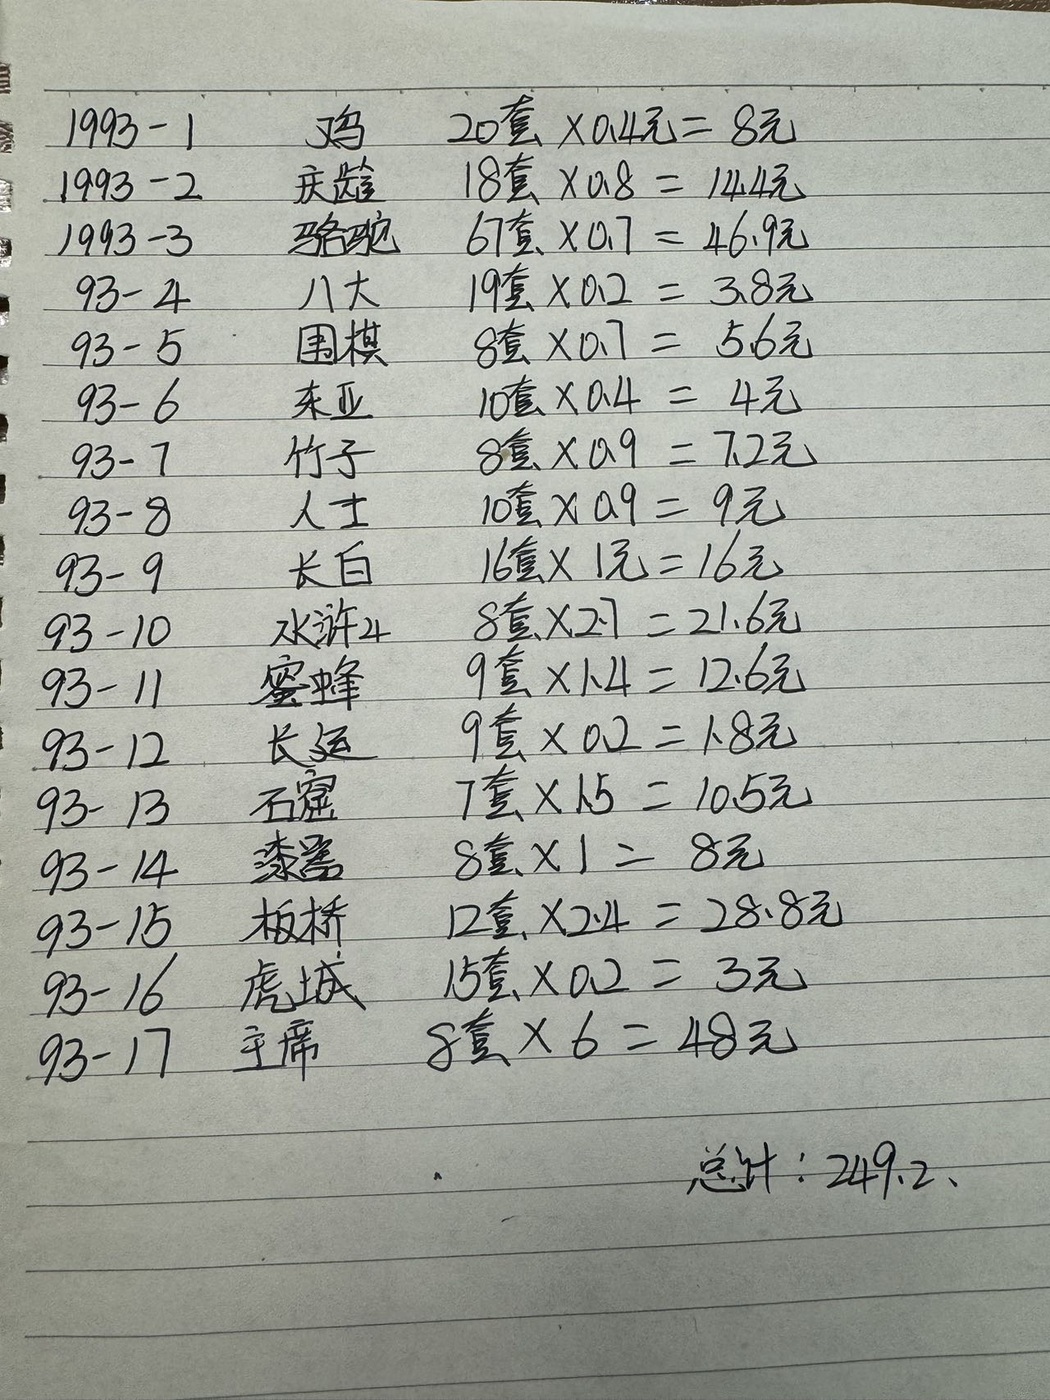 1993-1 鸡 20套×0.4元=8元
1993-2 庆龄 18套×0.8=14.4元
1993-3 骆驼 67套×0.7=46.9元
93-4 八大 19套×0.2=3.8元
93-5 围棋 8套×0.7=5.6元
93-6 东亚 10套×0.4=4元
93-7 竹子 8套×0.9=7.2元
93-8 人士 10套×0.9=9元
93-9 长白 16套×1元=16元
93-10 水浒4 8套×2.7=21.6元
93-11 蜜蜂 9套×1.4=12.6元
93-12 长运 9套×0.2=1.8元
93-13 石窟 7套×1.5=10.5元
93-14 漆器 8套×1=8元
93-15 板桥 12套×2.4=28.8元
93-16 虎城 15套×0.2=3元
93-17 主席 8套×6=48元
总计:249.2、